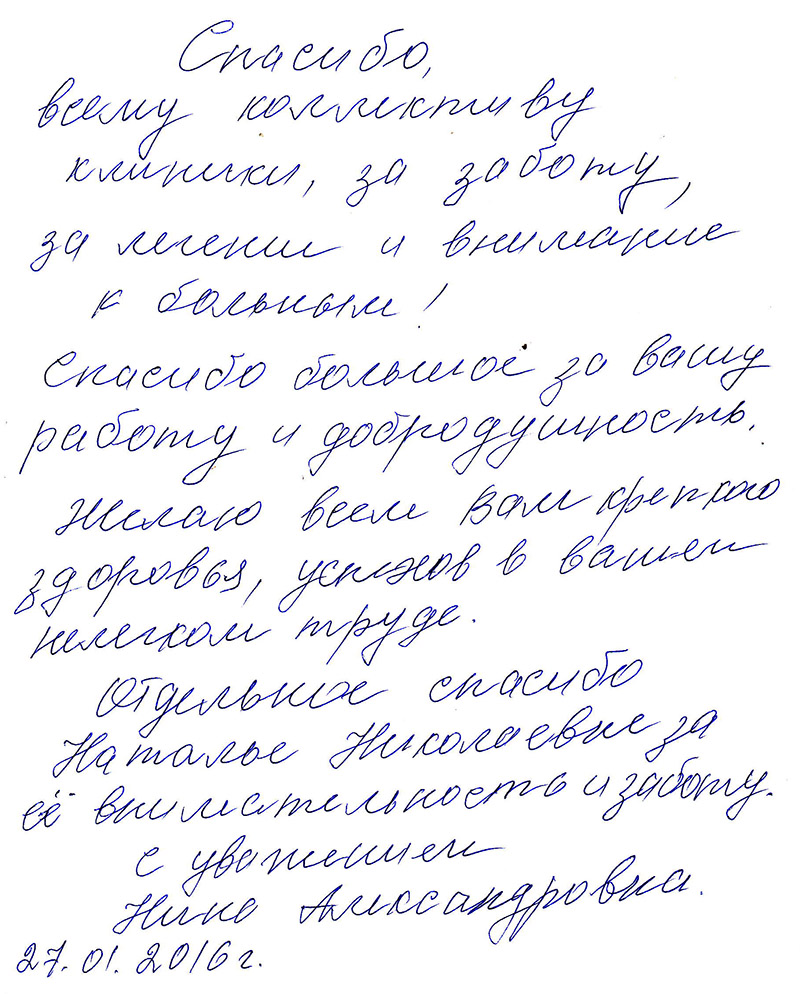 Спасибо,
всему коллективу
клиники, за заботу,
за лечение и внимание
к больным!
Спасибо большое за вашу
работу и добродушность.
Желаю всем Вам крепкого
здоровья, успехов в вашем
нелегком труде.
Отдельное спасибо
Наталье Николаевне за
её внимательность и заботу.
с уважением
Нина Александровна.
27.01.2016 г.